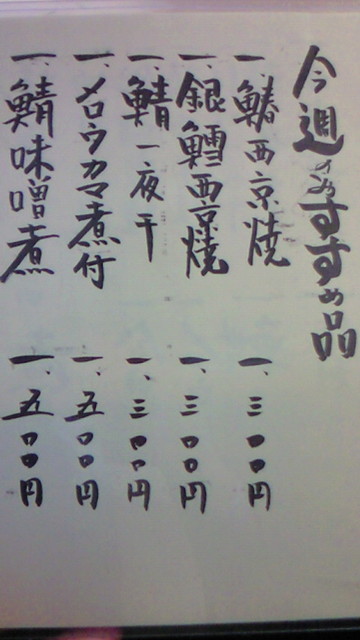 今週のおすすめ品
一、鰆西京焼 一、三〇〇円
一、銀鱈西京焼 一、三〇〇円
一、鯖一夜干 一、三〇〇円
一、メロウカマ煮付 一、五〇〇円
一、鯖味噌煮 一、五〇〇円